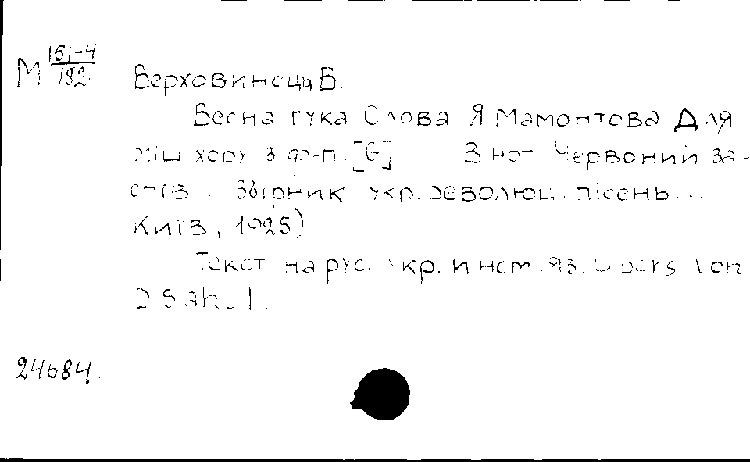 М 151-4/182 Верховинець В.
Весна гука Слова Я Мамонтова Для
міш хору з ф-п. [G] В нот Червоний за-
спів. Збірник укр. революц. пісень...
Київ, 1925)
Текст на рус. укр. и нем. яз.
24684.